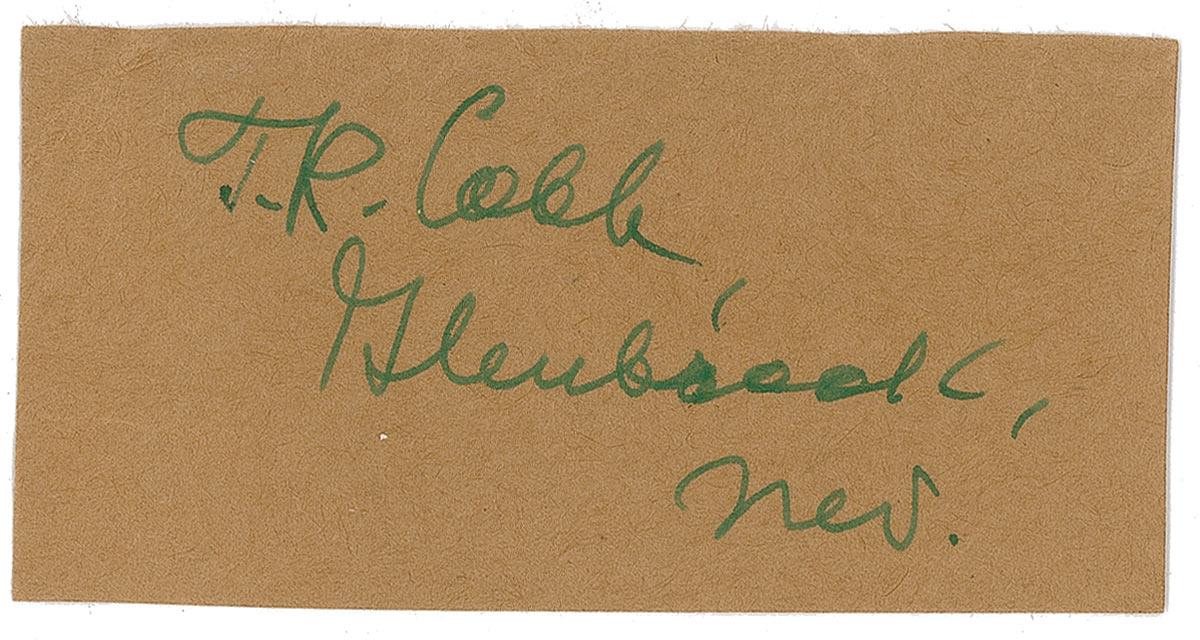 T.R. Cobb,
Glenbrook,
Nev.